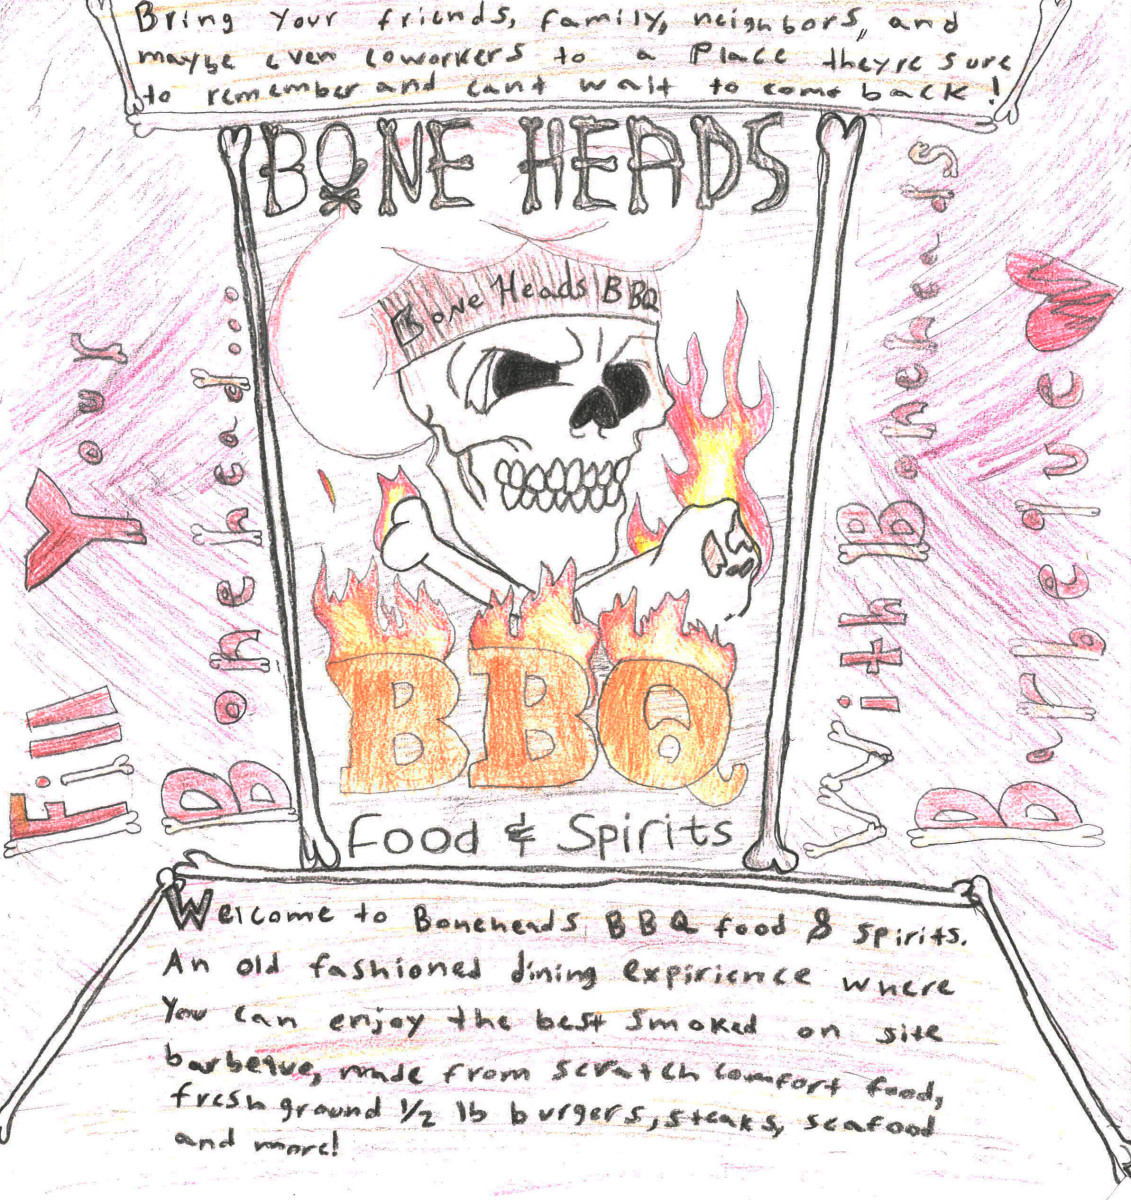 Bring your friends, family, neighbors, and
maybe even coworkers to a place theyre sure
to remember and cant wait to come back!
BONE HEADS
Bone Heads BBQ
BBQ
Food & Spirits
Fill Your
Bonehead...
With Boneheads
Barbeque
Welcome to Boneheads BBQ food & spirits.
An old fashioned dining expirience where
You can enjoy the best smoked on site
barbeque, made from scratch comfort food,
fresh ground 1/2 lb burgers, steaks, seafood
and more!